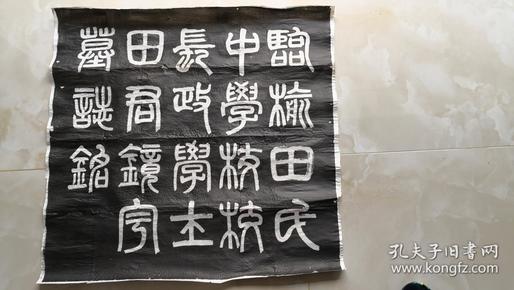 臨榆田氏
中學校校
長政學士
田君鏡宇
墓誌銘
孔夫子旧书网
www.kongfz.com